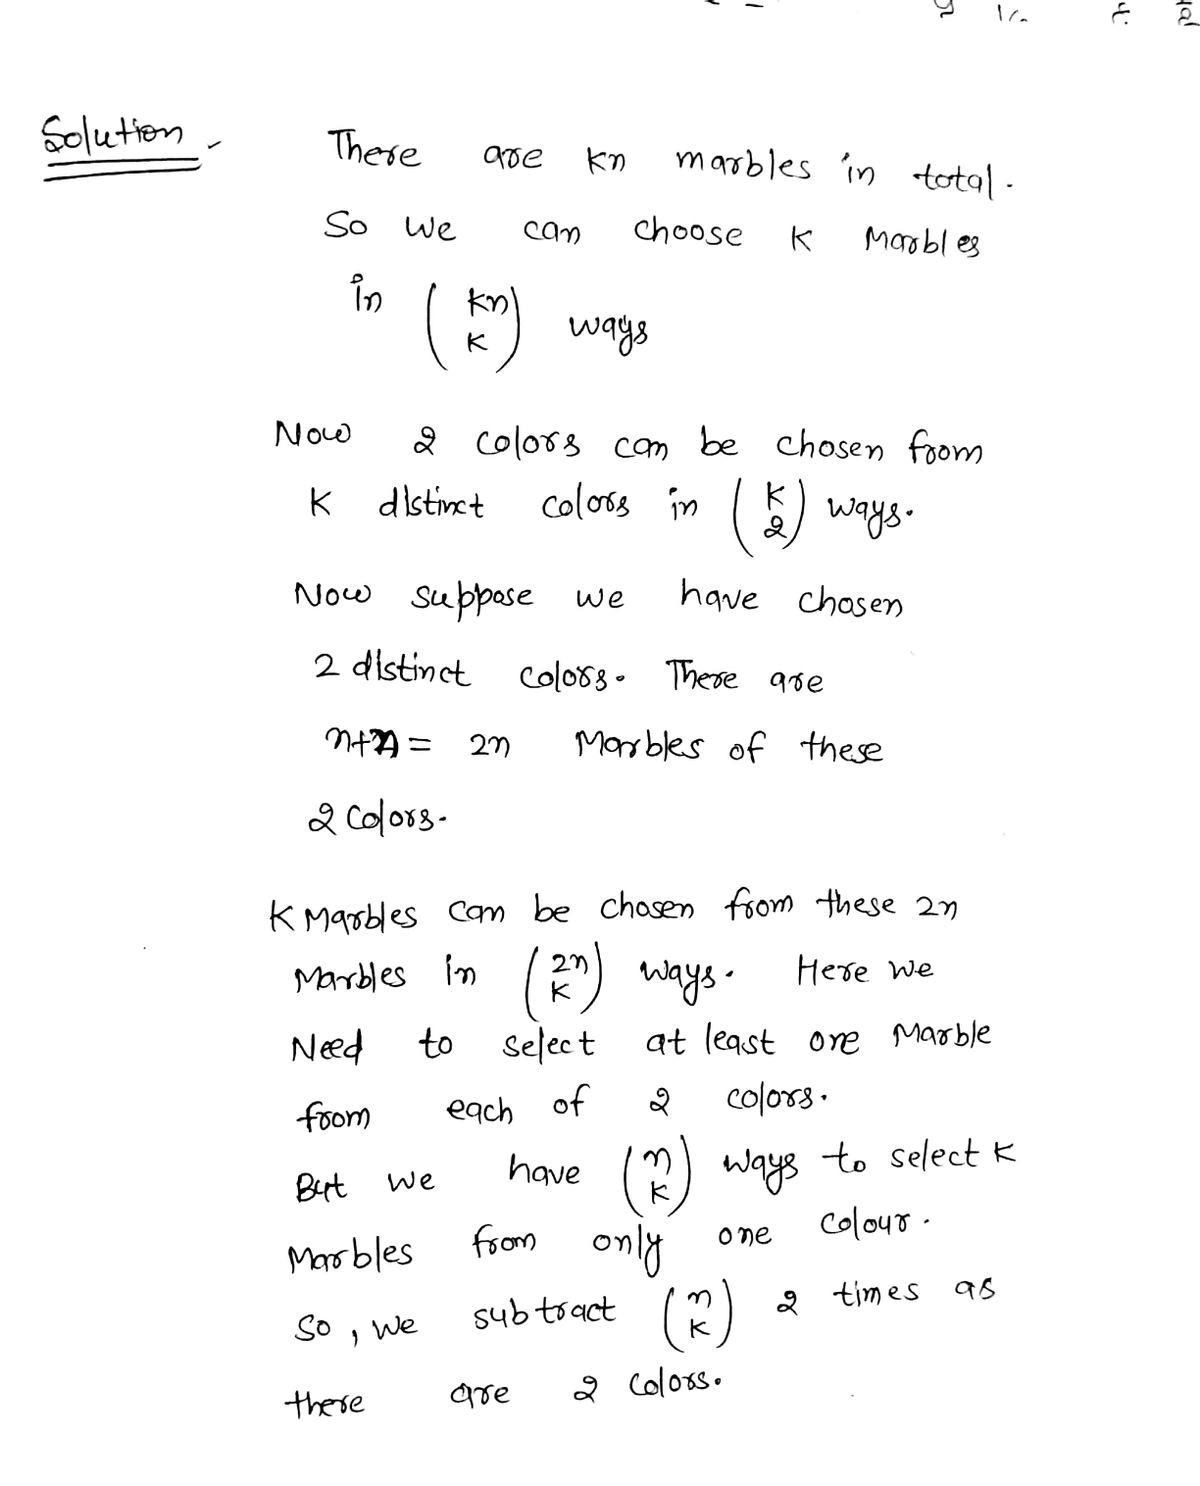 Solution -
There are kn marbles in total.
So we can choose k Marbles
in (kn k) ways
Now 2 colors can be chosen from
k distinct colors in (k 2) ways.
Now suppose we have chosen
2 distinct colors. There are
n+n = 2n Marbles of these
2 colors.
K Marbles can be chosen from these 2n
Marbles in (2n k) ways. Here we
Need to select at least one Marble
from each of 2 colors.
But we have (n k) ways to select k
Marbles from only one colour.
So, we subtract (n k) 2 times as
there are 2 colors.